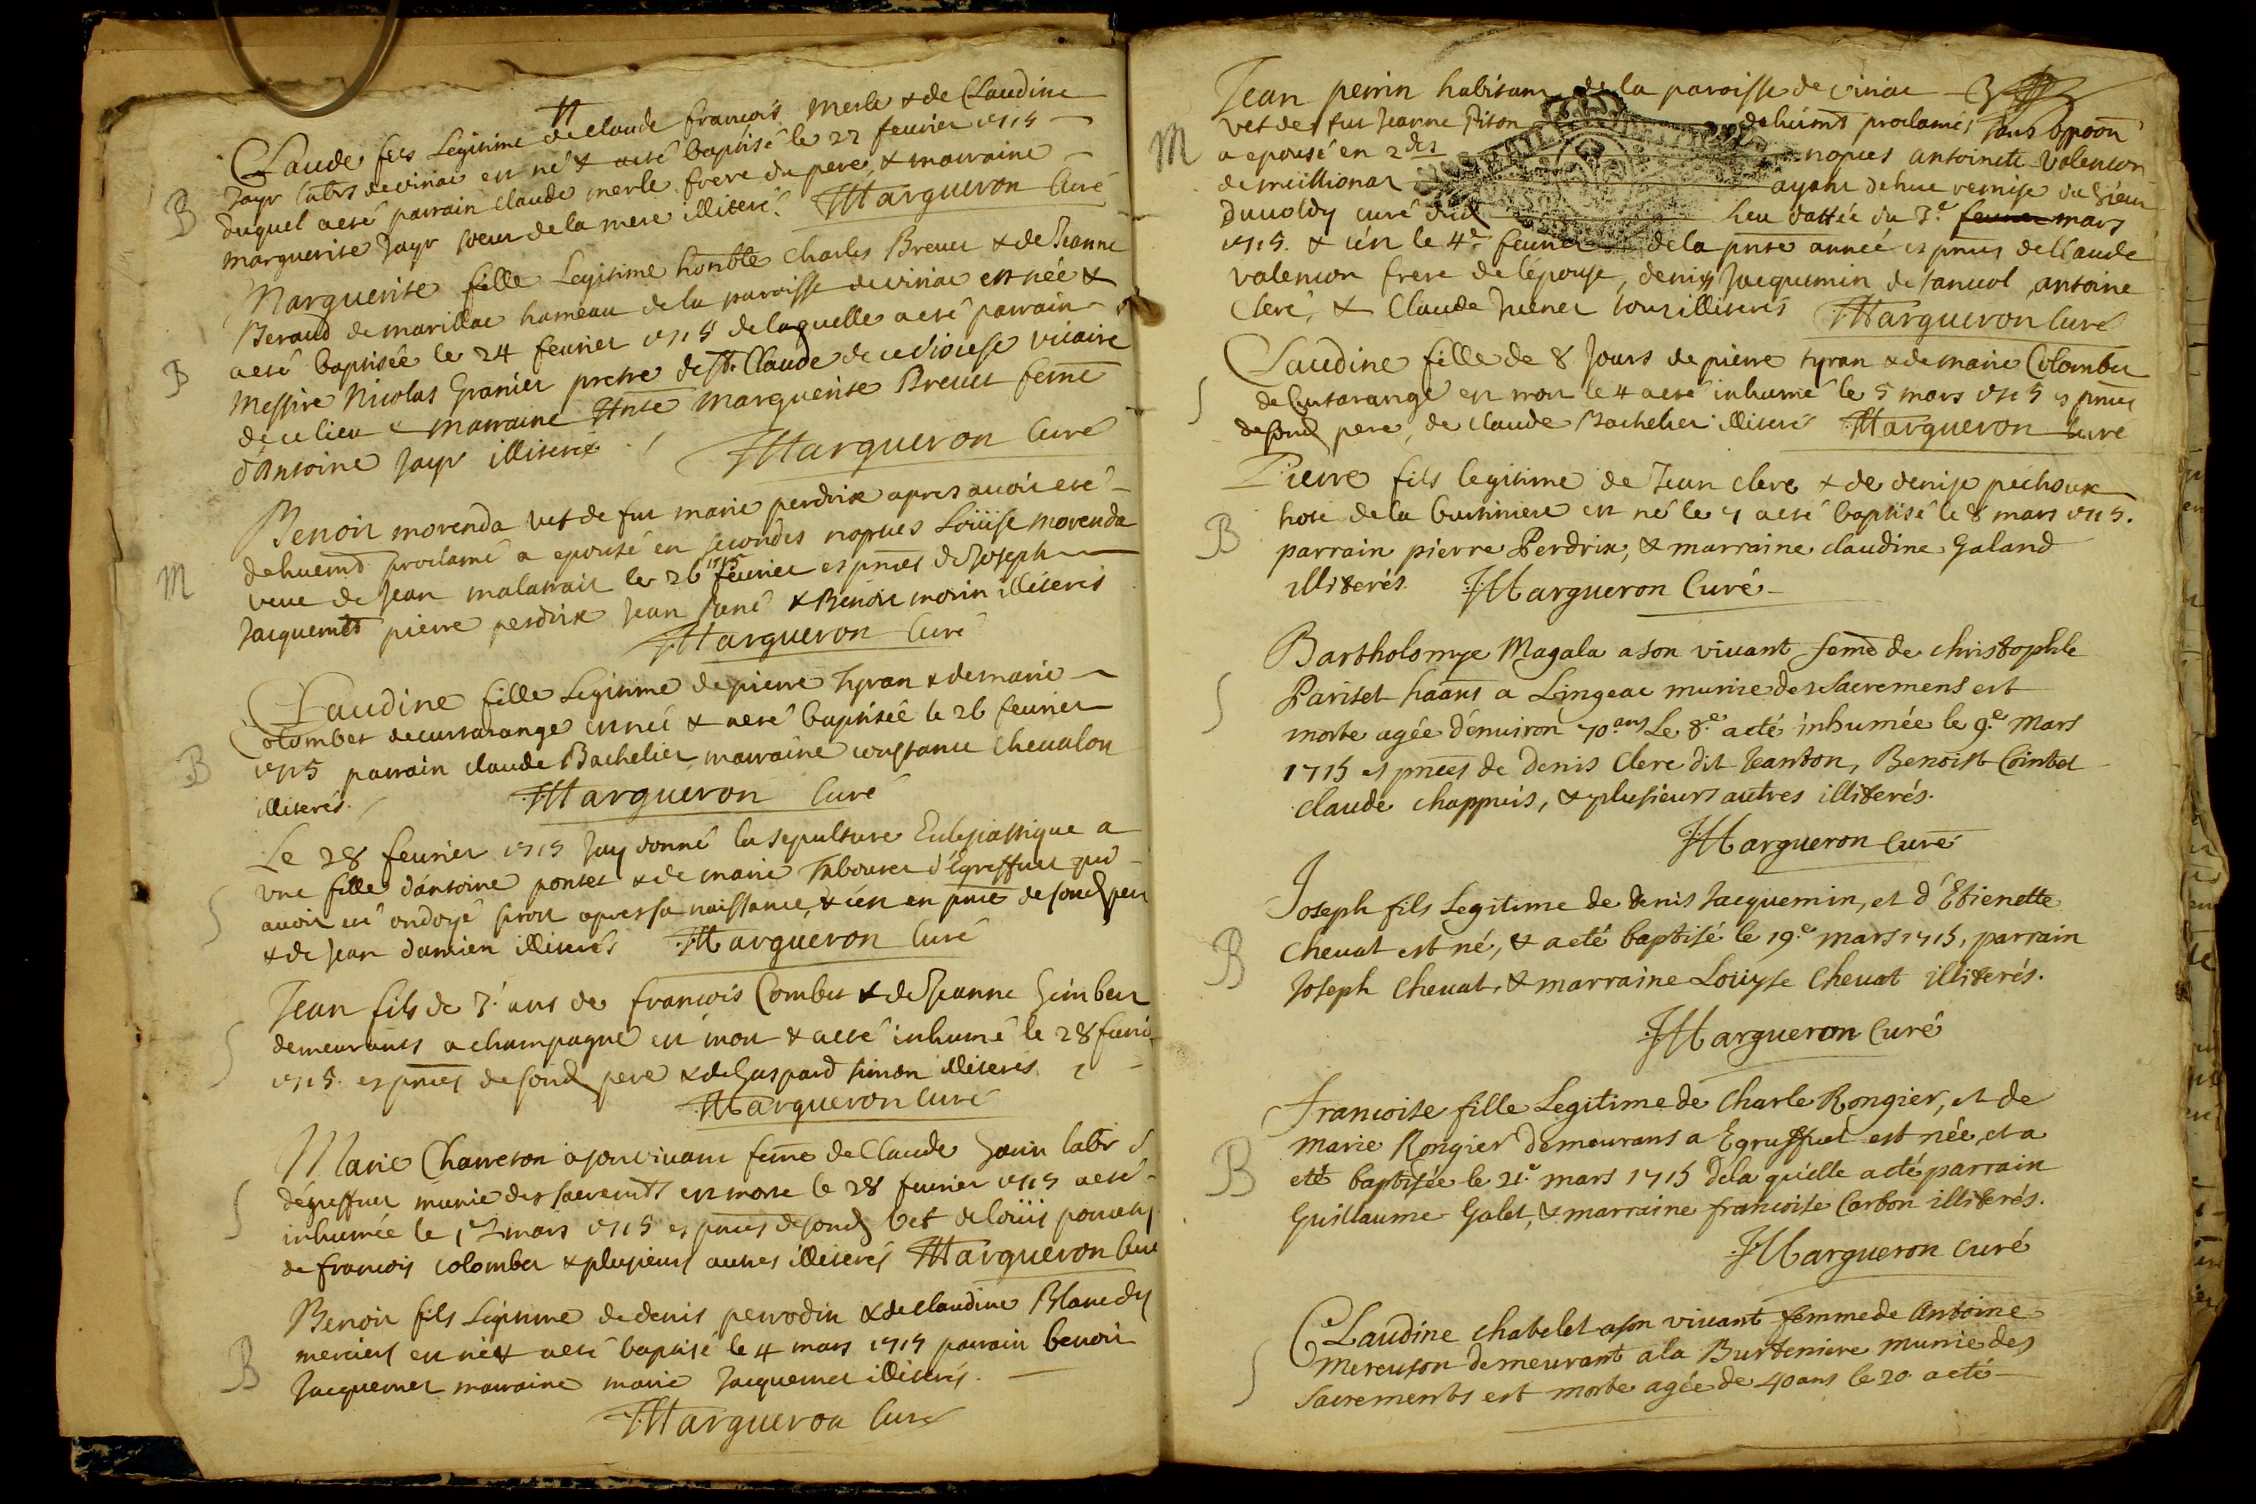 Claude fils Legitime de Claude francois Merle & de Claudine
Jayr labrs de viriac est né & a eté baptisé le 22 feurier 1715
duquel a eté parrain claude merle frere du pere, & marraine
marguerite Jayr soeur de la mere illiteré. JMargueron Curé
B
Marguerite fille Legitime honble Charles Breuet & de Jeanne
Beraud de marillac hameau de la paroisse de viriac est née &
a eté baptisée le 24 feurier 1715 de laquelle a eté parrain
B
Messire Nicolas Granier pretre de St. Claude de ce diocese vicaire
de ce lieu & marraine marguerite Breuet feme
d'Antoine Jayr illiteré JMargueron Curé
Benoit morenda vef de fut marie perdrix apres auoir eté
dehuemt proclamé a epousé en secondes nopces Loüise morenda
M
veue de Jean le 26 feurier 1715 es pnces de Joseph
Jacquemet pierre perdrix Jean & Benoit morin illiterés
JMargueron Curé
Claudine fille Legitime de pierre tyran & de marie
Colombet de cursarange est née & a eté baptisée le 26 feurier
B
1715 parrain claude Bachelier, marraine constance Cheualon
illiterés. JMargueron Curé
Le 28 feurier 1715 Jay donné la sepulture Eclesiastique a
vne fille d'antoine pontet & de marie d'Egreffuel qui
S
auoit eté ondoyé sitot apres sa naissance, & cest en pnce de sond pere
& de Jean damien illiterés JMargueron Curé
Jean fils de 3 ans de francois Combet & de Jeanne Gimbert
S
demeurants a champagne est mort & a eté inhumé le 28 feuri
1715. es pnces de sond pere & de Gaspard simon illiterés
JMargueron Curé
Marie Charreton a son viuant feme de Claude Gouin labr
S
d'égreffuel munie des sacremts est morte le 28 feurier 1715 a eté
inhumée le 1er mars 1715 es pnces de sond vef de loüis
de francois colombet & plusieurs autres illiterés JMargueron Curé
Benoit fils Legitime de denis perrodin & de claudine
B
merciers est né & a eté baptisé le 4 mars 1715 parrain benoit
Jacquemet marraine marie Jacquemet illiterés.
JMargueron Curé
Jean perrin habitant de la paroisse de viriac
M
vef de fut Jeanne Piton dehuemt proclamés sans oppoon
a epousé en 2des nopces antoinette Valencon
de meillionat ayant dehue remise du Sieur
curé dud lieu dattée du 3e feurier mars
1715. & cest le 4e feurier de la pnte année es pnces de Claude
valencon frere de lépouse, denis Jacquemin de antoine
Clerc, & Claude tous illiterés JMargueron Curé
Claudine fille de 8 Jours de pierre tyran & de marie Colombet
S
de Cursarange est mort le 4 a eté inhumé le 5 mars 1715 es pnces
de sond pere, de claude Bachelier illiterés JMargueron Curé
Pierre fils legitime de Jean clerc & de denise pechoux
B
hote de la burtiniere est né le 7 a eté baptisé le 8 mars 1715.
parrain pierre Perdrix, & marraine claudine Galand
illiterés. JMargueron Curé
Bartholomye Magala a son viuant feme de christophle
S
Pariset haans a Lingeac munie des Sacremens est
morte agée d'enuiron 70 ans Le 8e a eté inhumée le 9e Mars
1715 es pnces de Denis Clerc dit Jeanton, Benoist Cointet
claude chappuis, & plusieurs autres illiterés.
JMargueron Curé
Joseph fils Legitime de denis Jacquemin, et d'Etienette
B
Cheuat est né, & a eté baptisé le 19e mars 1715, parrain
Joseph Cheuat, & marraine Loüyse Cheuat illiterés.
JMargueron Curé
Francoise fille Legitime de Charle Rongier, et de
Marie Rongier demeurans a Egruffuel est née, et a
B
eté baptisée le 21e mars 1715 de la quelle a eté parrain
Guillaume Galet, & marraine francoise Carbon illiterés.
JMargueron Curé
CLaudine Chatelet a son viuant femme de Antoine
S
Mercuson demeurant a la Burteniere munie des
Sacrements est morte agée de 40 ans le 20 a eté